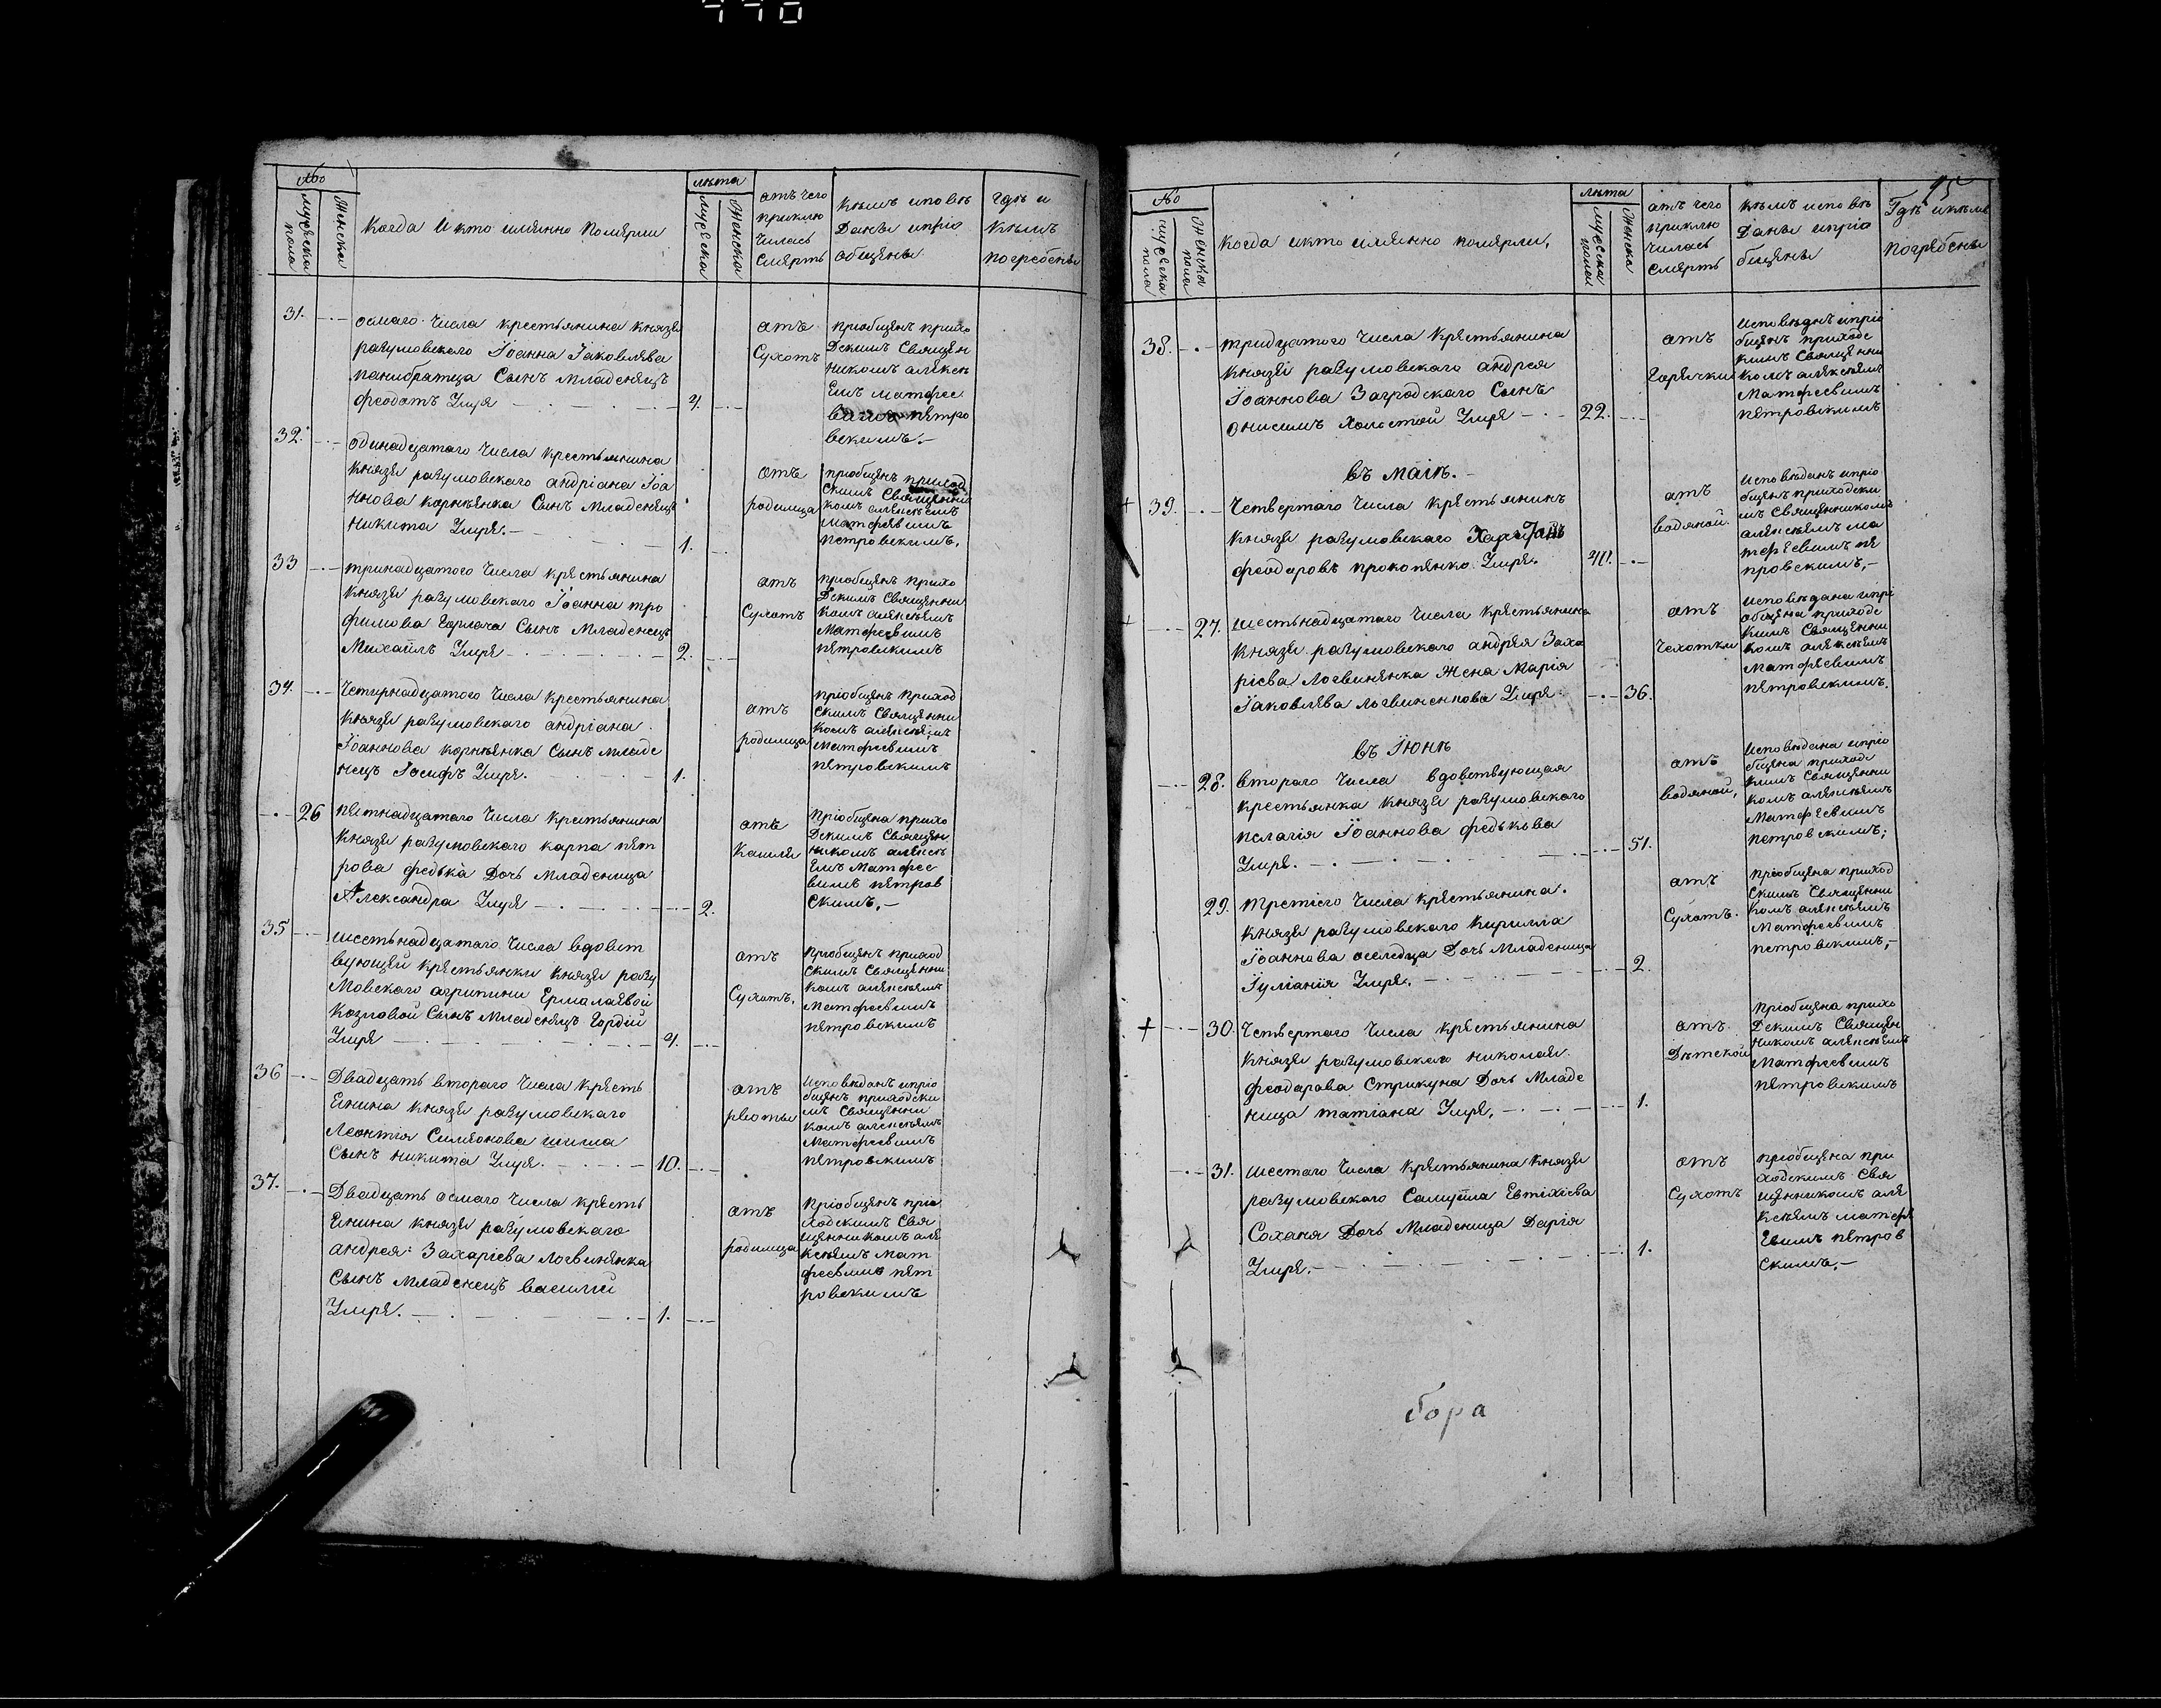 770
№
мужеска пола
Женска
Когда и кто имянно Померли
лѣта
мужеска
Женска
отъ чего
приклю
чилась
смерть
Кѣмъ исповѣ
даны и прiо
общены
гдѣ и
кѣмъ
погребены
31.
осмаго числа крестьянина князя
разумовского Iоанна Iаковлева
панибратца Сынъ младенецъ
феодотъ Умре
4.
отъ
Сухотъ
прiобщенъ прихо
дскимъ Священ
никомъ алексѣ
емъ матфее
вымъ петро
вскимъ.
32.
одинадцатаго числа крестьянина
князя разумовскаго андрiана Iоа
ннова корнѣенка Сынъ Младенецъ
никита Умре.
1.
отъ
родимца
прiобщенъ приход
скимъ Священни
комъ алексѣемъ
матфеевимъ
петровскимъ.
33
тринадцатого числа крестьянина
князя разумовскаго Iоанна тро
фимова Горлача Сынъ Младенецъ
Михаилъ Умре
2.
отъ
Сухотъ
прiобщенъ прихо
дскимъ Священни
комъ алексѣемъ
Матфеевимъ
петровскимъ
34.
Четирнадцатого числа крестьянина
князя разумовскаго андрiана
Iоаннова корнѣенка Сынъ младе
нецъ Iосифъ Умре.
1.
отъ
родимца
прiобщенъ приход
скимъ Священни
комъ алексѣемъ
Матфеевимъ
петровскимъ
26
пятнадцатаго числа крестьянина
князя разумовскаго карпа пет
рова федька Дочь младеница
Александра Умре
2.
отъ
Кашля
Прiобщена прихо
дскимъ Священ
никомъ алексѣ
емъ Матфее
вимъ петров
скимъ.
35
шестьнадцатаго числа вдовст
вующей крестьянки князя разу
мовскаго агрипини Ермолаевой
козловой Сынъ младенецъ Гордiй
Умре
4.
отъ
Сухотъ.
прiобщенъ приход
скимъ Священни
комъ алексѣемъ
Матфеевимъ
петровскимъ
36
Двадцать втораго числа кресть
янина князя разумовскаго
Леонтiя Симеонова шила
Сынъ никита Умре.
10.
отъ
рвоты
исповѣданъ и прiо
бщенъ приходски
мъ Священни
комъ алексѣемъ
Матфеевимъ
петровскимъ
37.
Двадцать осмаго числа кресть
янина князя разумовскаго
андрея Захарiева логвиненка
Сынъ младенецъ василiй
Умре.
1.
отъ
родимца
Прiобщенъ при
ходскимъ Свя
щенникомъ але
ксѣемъ мат
феевимъ пет
ровскимъ
95
№
мужеска пола
Женска пола
Когда и кто имянно померли,
лѣта
мужеска пола
Женска
отъ чего
приклю
чилась
смерть
кѣмъ исповѣ
даны и прiо
бщены
Гдѣ и кѣмъ
погребены
38.
тридцатого числа крестьянина
князя разумовскаго андрея
Iоаннова Загродскаго Сынъ
онисимъ холостой Умре
22.
отъ
Горячки
исповѣднъ и прiо
бщенъ приходс
кимъ Священни
комъ алексѣемъ
Матфеевимъ
петровскимъ
въ маiѣ.
+
39.
Четвертаго числа крестьянинъ
князя разумовскаго Хаританъ
феодоровъ прокопенко Умре.
40.
отъ
водяной.
исповѣданъ и прiо
бщенъ приходски
мъ Священникомъ
алексѣемъ ма
тфеевимъ пе
тровскимъ,
27.
шестьнадцатаго числа крестьянина
князя разумовскаго андрея Заха
рiева логвиненка Жена Марiя
Iаковлева логвиненкова Умре
36.
отъ
Чехотки
исповѣдана и прi
общена приходс
кимъ Священни
комъ алексѣемъ
Матфеевимъ
петровскимъ.
въ Iюнѣ
28.
втораго числа вдовствующая
крестьянка князя разумовскаго
пелагiя Iоаннова федькова
Умре.
51.
отъ
водяной,
исповѣдана и прiо
бщена приходс
кимъ Священни
комъ алексѣемъ
Матфеевимъ
петровскимъ;
29.
третiего числа крестьянина
князя разумовскаго Кирилла
Iоаннова оселедца Дочь Младеница
Iулiанiя Умре.
2.
отъ
Сухотъ.
прiобщена приход
скимъ Священни
комъ алексѣемъ
Матфеевимъ
петровскимъ,
+
30.
Четвертаго числа крестьянина
князя разумовскаго николая
феодарова Стрикуна Дочь Младе
ница татiана Умре,
1.
отъ
Дѣтской
Прiобщена прихо
дскимъ Священ
никомъ алексѣемъ
Матфеевимъ
петровскимъ
31.
шестаго числа крестьянина князя
разумовскаго Самуила Евтихiева
Соханя Дочь Младеница Дарiя
Умре.
1.
отъ
Сухотъ
прiобщена при
ходскимъ Свя
щенникомъ але
ксѣемъ матфе
евимъ петров
скимъ.
бора